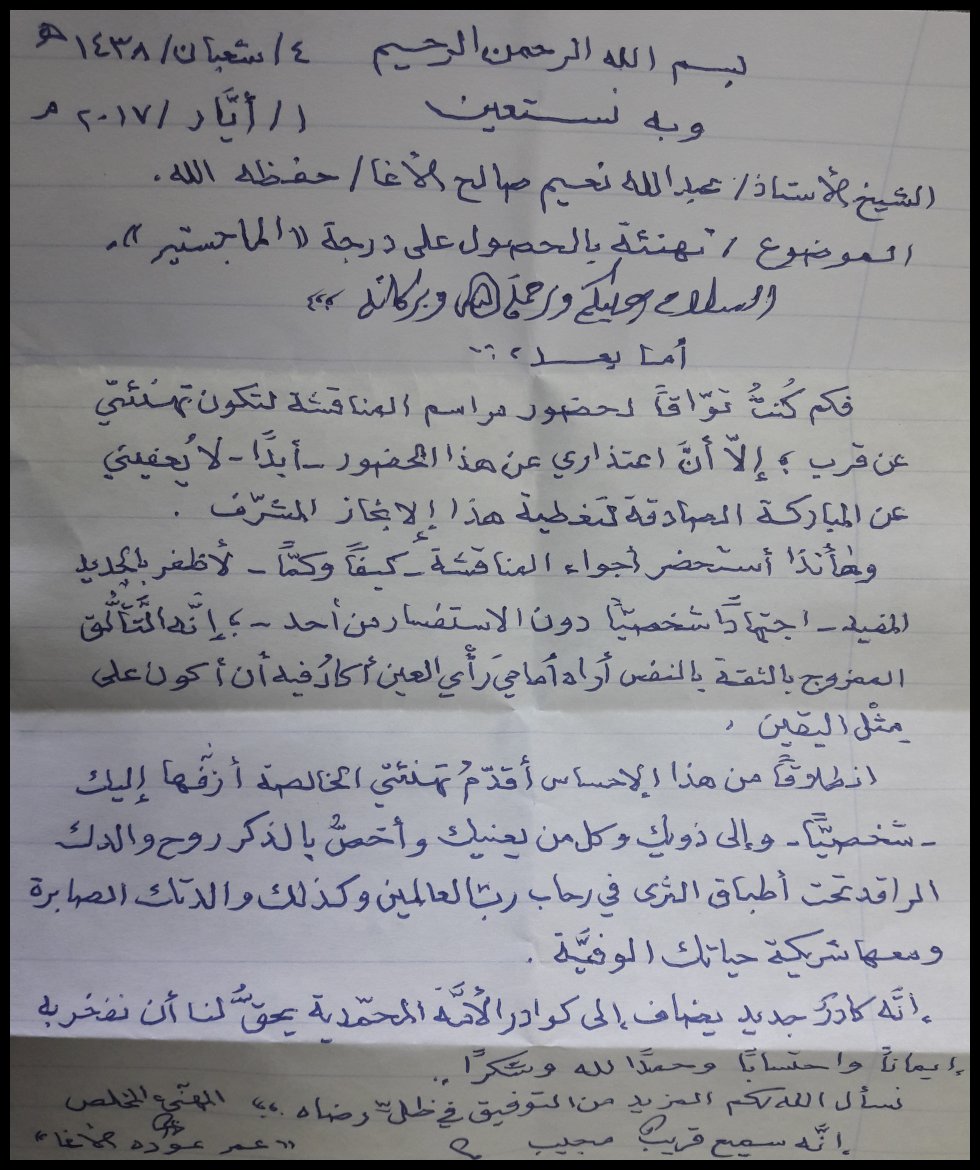 بسم الله الرحمن الرحيم ٤/شعبان/١٤٣٨هـ
وبه نستعين ١/أيَّار/٢٠١٧م
الشيخ الأستاذ/ عبدالله نعيم صالح الأغا/ حفظه الله.
الموضوع / تهنئة بالحصول على درجة «الماجستير».
السلام عليكم ورحمة الله وبركاته ،،،
أما بعد ،...
فكم كُنتُ توّاقاً لحضور مراسم المناقشة لتكون تهنئتي
عن قرب ؛ إلاّ أنَّ اعتذاري عن هذا الحضور -أبدًا- لا يُعفيني
عن المباركة الصادقة لتغطية هذا الإنجاز المشرّف .
وهأنذا أستحضر أجواء المناقشة -كيفًا وكمًّا- لأظفر بالجديد
المفيد -اجتهادًا شخصيّاً دون الاستفسار من أحد- ؛ إنّه التَّألُّق
الممزوج بالثقة بالنفس أراه أمامي رَأْي العين أكادُ فيه أن أكون على
مِثْل اليقين .
انطلاقًا من هذا الإحساس أقدّمُ تهنئتي الخالصة أزفُّها إليك
-شخصيًّا- وإلى ذويك وكل من يعنيك وأخصُّ بالذكر روح والدك
الراقد تحت أطباق الثرى في رحاب ربّ العالمين وكذلك والدتك الصابرة
ومعها شريكة حياتك الوفيَّة .
إنَّه كادرٌ جديد يضاف إلى كوادر الأُمَّة المحمّدية يحقُّ لنا أن نفخر به
إيماناً واحتسابًا وحمدًا لله وشكرًا..
نسأل الله لكم المزيد من التوفيق في ظلّ رضاه ،،، المهنّيء المخلص
إنَّه سميع قريبٌ مجيب «عمر عوده الأغا»